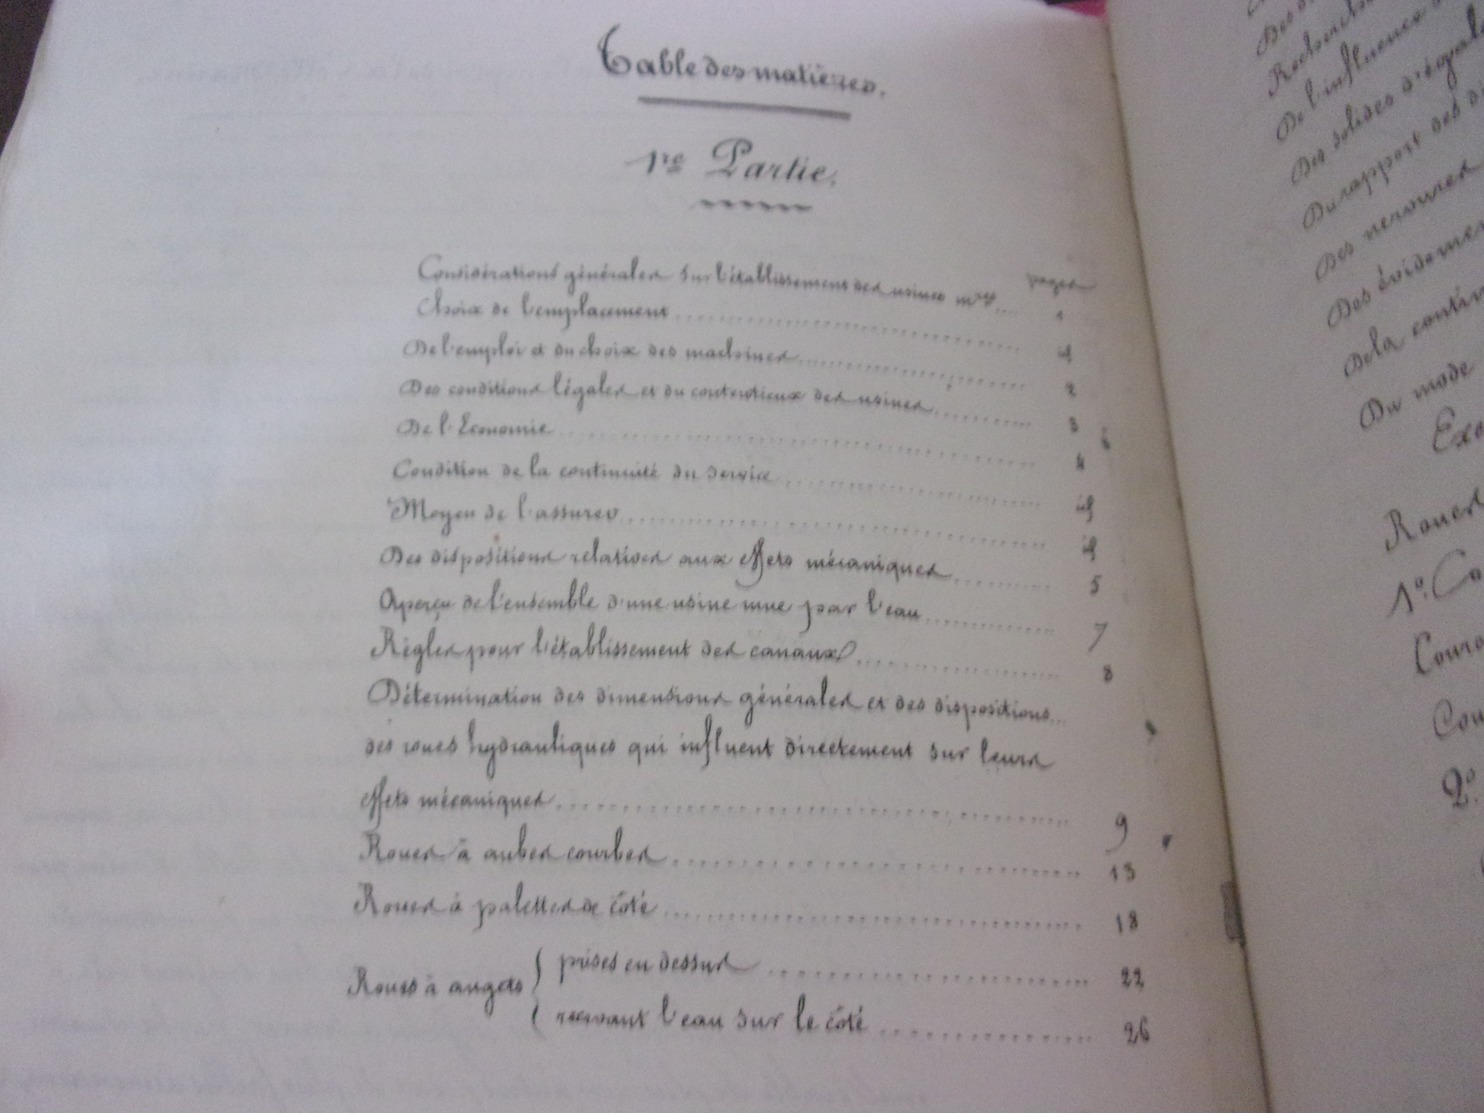 Table des matières.
1re Partie.
pages
Considérations générales sur l'établissement des usines mues .... 1
Choix de l'emplacement .... id
De l'emploi et du choix des machines .... 2
Des conditions légales et du contentieux des usines .... 3
De l'Economie .... 4
Condition de la continuité du service .... id
Moyen de l'assurer .... id
Des dispositions relatives aux effets mécaniques .... 5
Aperçu de l'ensemble d'une usine mue par l'eau .... 7
Règles pour l'établissement des canaux .... 8
Détermination des dimensions générales et des dispositions ...
des roues hydrauliques qui influent directement sur leurs
effets mécaniques .... 9
Roues à aubes courbes .... 13
Roues à palettes de côté .... 18
Roues à augets { prises en dessus .... 22
{ recevant l'eau sur le côté .... 26
Recherches
De l'influence
Des solides d'égale
Du rapport des
Des nervures
Des évidements
De la contin
Du mode
Exe
Roues
1º. Co
Couro
Cou
2º.